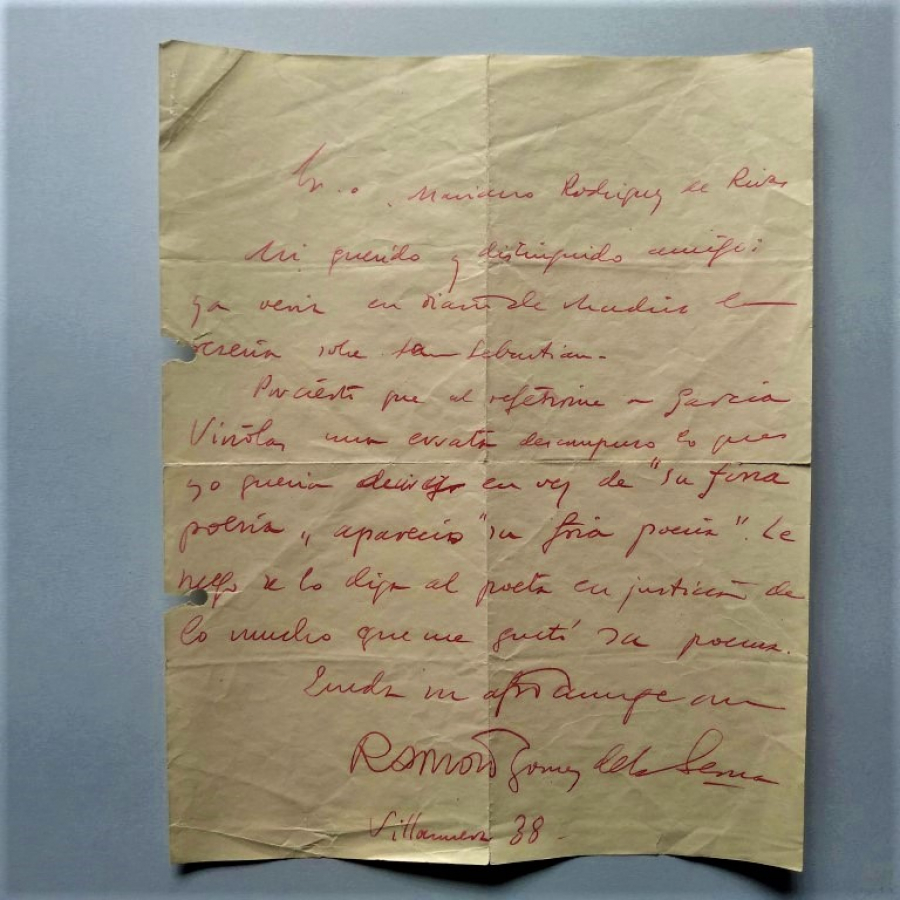 Sr. D. Mariano Rodriguez de Rivas
Mi querido y distinguido amigo:
ya vería en Diario de Madrid la
reseña sobre San Sebastian.
Por cierto que al referirme a García
Viñolas una errata descompuso lo que
yo queria decir en vez de "su fina
poesía" aparecio "su fria poesía". Le
ruego se lo diga al poeta en justicia de
lo mucho que me gustó su poema.
Queda su afmo amigo
Ramon Gomez de la Serna
Villanueva 38